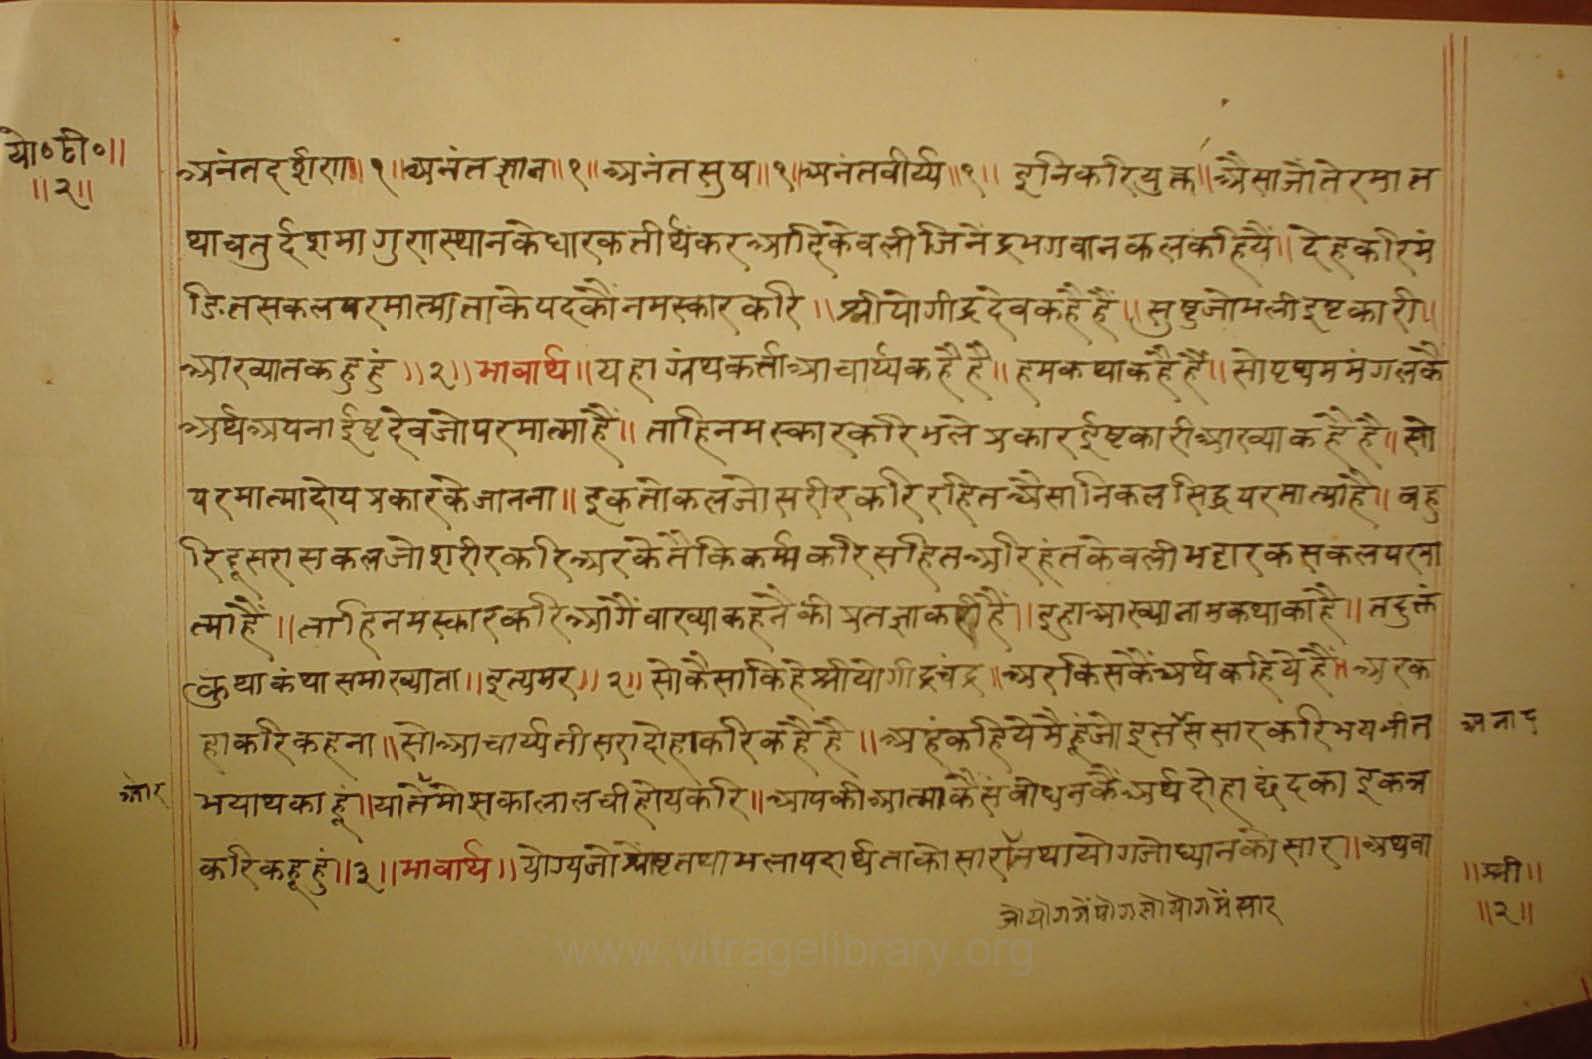 यो॰टी॰॥
॥२॥
अनंतदर्शण॥१॥अनंतज्ञान॥१॥अनंतसुष॥१॥अनंतवीर्य्य॥१॥ इनिकरियुक्त॥अैसाजौतेरमात
थाचतुर्दशमागुणस्थानकेधारकतीर्थंकरआदिकेवलीजिनेंद्रभगवानकलकहियैं॥देहकरिमं
डितसकलपरमात्माताकेपदकौंनमस्कारकरि॥श्रीयोगींद्रदेवकहैहैं॥सुष्टुजोभलीइष्टकारी॥
आख्यातकहुहुं॥२॥भावार्थ॥यहाग्रंथकर्त्ताआचार्य्यकहैहै॥हमकथाकहैहैं॥सोप्रथममंगलकै
अर्थअपनाईष्टदेवजोपरमात्माहैं॥ताहिनमस्कारकरिभलेप्रकारईष्टकारीआख्याकहैहै॥सो
परमात्मादोयप्रकारकेजानना॥इकतोकलजोसरीरकरिरहितअैसानिकलसिद्धपरमात्माहै॥वहु
रिदूसरासकलजोशरीरकरिअरकेतैकिकर्म्मकरिसहितअरिहंतकेवलीभट्टारकसकलपरमा
त्माहैं॥ताहिनमस्कारकरिआगैंवाख्याकहनैकीप्रतज्ञाकरीहैं॥इहाआख्यानामकथाकाहै॥तदुक्तं
कथाकंथासमाख्याता॥इत्यमर॥२॥सोकैसाकिहेश्रीयोगींद्रचंद्र॥अरकिसकैंअर्थकहियेहैं॥अरक
हाकरिकहना॥सोआचार्य्यतीसरादोहाकरिकहैहै॥अहंकहियेमैहूंजोइससंसारकरिभयभीत
अनाद
भयाथकाहूं॥यातैंमोक्षकालालचीहोयकरि॥आपकीआत्माकैंसंबोधनकैंअर्थदोहाछंदकाइकत्र
और
करिकहूहुं॥३॥भावार्थ॥योग्यजोश्रेष्टतथाभलापदार्थताकोसारतथायोगजोध्यानकोसार॥अथवा
जोयोगमेंयोगसोयोगमेंसार
॥श्री॥
॥२॥
www.vitragelibrary.org